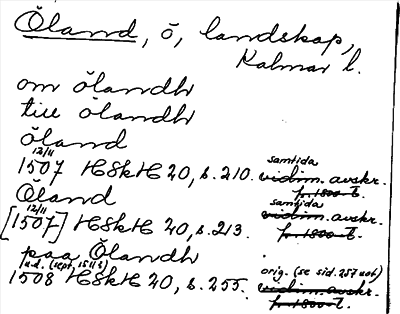 Öland, ö, landskap,
Kalmar l.
om ölandh
till ölandh
öland
12/11 samtida
1507 HSkH 20, s. 210. vidim. avskr.
fr. 1800-t.
Öland
12/11 samtida
[1507] HSkH 20, s. 213. vidim. avskr.
fr. 1800-t.
paa Ölandh
u.d. (sept, orig. (se sid. 257 not)
1508 HSkH 20, s. 255. vidim. avskr.
fr. 1800-t.